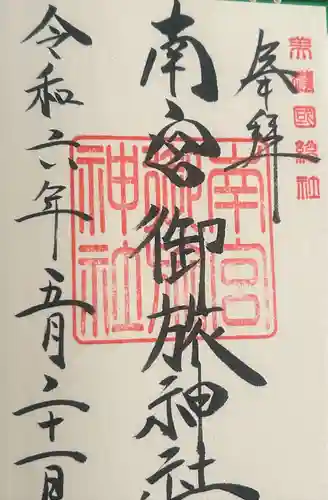 美濃國総社
奉拝
南宮御旅神社
南宮御旅神社
令和六年五月二十一日